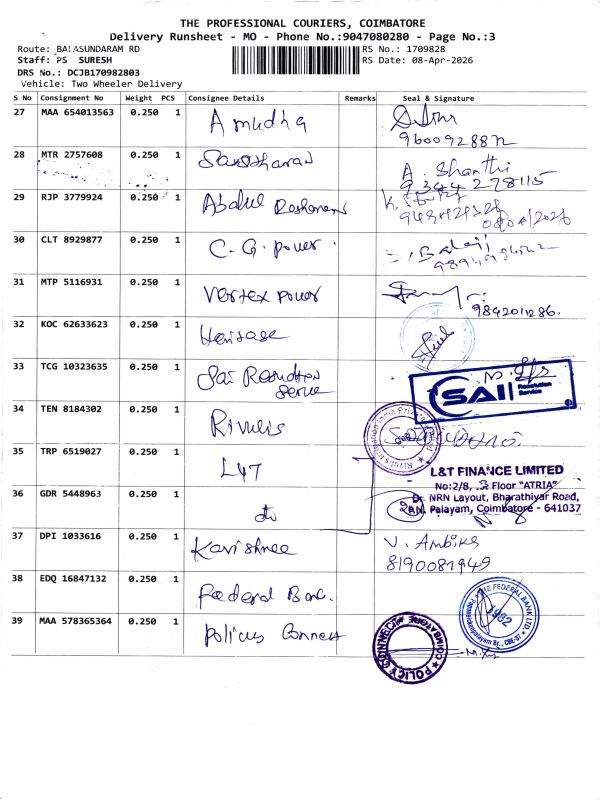 THE PROFESSIONAL COURIERS, COIMBATORE
Delivery Runsheet - MO - Phone No.:9047080280 - Page No.:3
Route: BALASUNDARAM RD
RS No.: 1709828
Staff: PS SURESH
RS Date: 08-Apr-2026
DRS No.: DCJB170982803
Vehicle: Two Wheeler Delivery
S No Consignment No Weight PCS Consignee Details Remarks Seal & Signature
27 MAA 654013563 0.250 1 Amudha
9600928872
28 MTR 2757608 0.250 1
A. Shanthi
9344278115
29 RJP 3779924 0.250 1 Abdul
08/04/2026
30 CLT 8929877 0.250 1 C.G. power
Balaji
31 MTP 5116931 0.250 1 Vertex power
9842011286.
32 KOC 62633623 0.250 1 Heritage
33 TCG 10323635 0.250 1 Sai Resolution
Serve
SAI Resolution
Service
34 TEN 8184302 0.250 1 Rivulis
Rivulis Irrigation India Private
35 TRP 6519027 0.250 1 L&T
L&T FINANCE LIMITED
No:2/8, Floor "ATRIA"
Dr. NRN Layout, Bharathiyar Road,
P.N. Palayam, Coimbatore - 641037
36 GDR 5448963 0.250 1 do
37 DPI 1033616 0.250 1 Kavishree
V. Ambika
8190081949
38 EDQ 16847132 0.250 1 Federal Banc.
THE FEDERAL BANK LTD.
1982
Papanaickenpalayam Br., CBE-37
39 MAA 578365364 0.250 1 Policys Connect
POLICY CONNECT
COIMBATORE